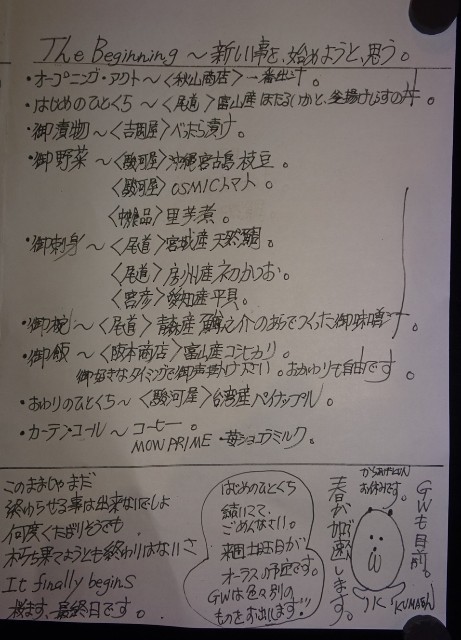 The Beginning ～ 新しい事を、始めようと、思う。
・オープニング・アクト～〈秋山商店〉一番出汁。
・はじめのひとくち～〈尾道〉富山産 ほたるいかと、釜揚げしらすの丼。
・御漬物～〈吉岡屋〉べったら漬け。
・御野菜～〈駿河屋〉沖縄宮古島 枝豆。
〈駿河屋〉OSMICトマト。
〈食品〉里芋煮。
・御刺身～〈尾道〉宮城産 天然鯛。
〈尾道〉房州産 初かつお。
愛知産 平貝。
・御椀～〈尾道〉青森産 之介のあらでつくった御味噌汁。
・御飯～〈阪本商店〉富山産コシヒカリ。
御好きなタイミングで御声掛け下さい。おかわりも自由です。
・おわりのひとくち～〈駿河屋〉台湾産パイナップル。
・カーテン・コール～コーヒー。
MOW PRIME・苺ショコラミルク。
このままじゃまだ
終わらせる事は出来ないでしょ
何度くたばりそうでも
朽ち果てようとも終わりはないさ
It finally begins
桜ます、最終日です。
はじめのひとくち
続いてて、
ごめんなさい。
来週土曜日が
オーラスの予定です。
GWは色々別の
ものをお出しします!!
からあげKUN
お休みです。
GWも目前。
春が加速します。
KUMAさん